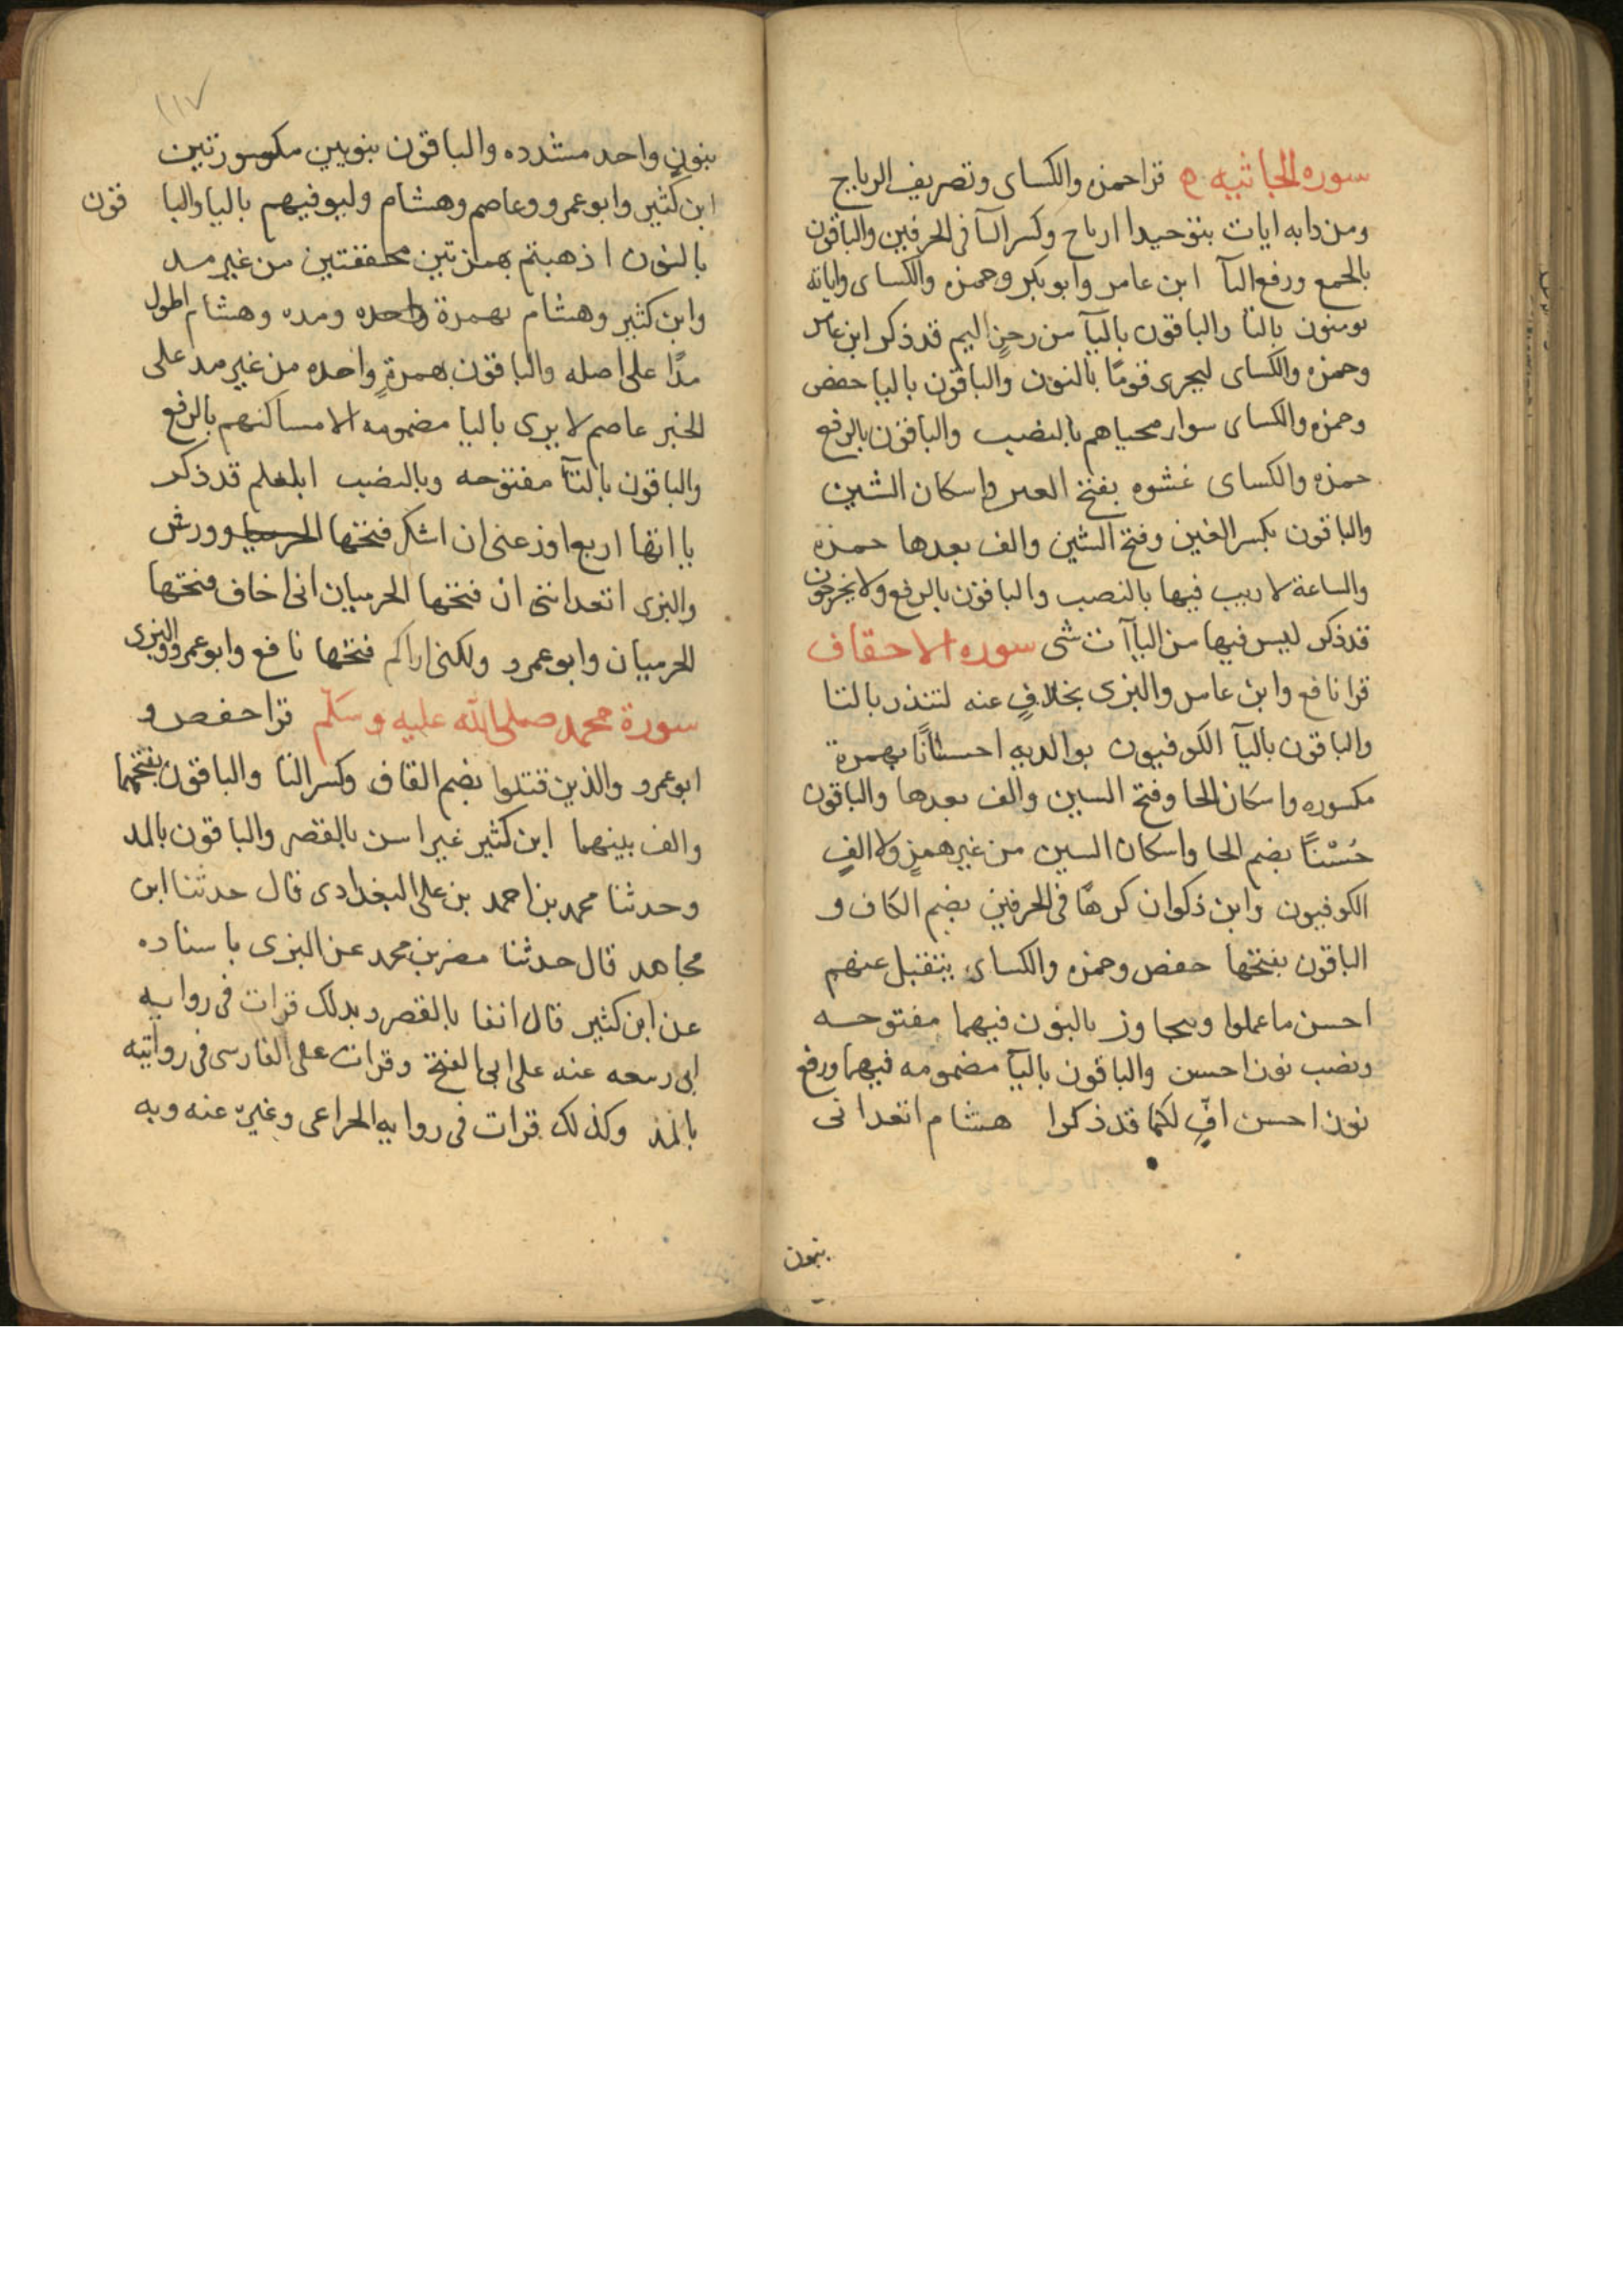 سوره الجاثيه قرا حمزه والكساى وتصريف الرياح
ومن دابه ايات بتوحيد ا ارياح وكسر التآ فى الحرفين والباقون
بالجمع ورفع التآ ابن عامر وابو بكر وحمزه والكساى واياته
تومنون بالتا والباقون باليآ من رجزٍ اليم قد ذكر ابن عامر
وحمزه والكساى ليجزى قومًا بالنون والباقون باليا حفص
وحمزه والكساى سوا محياهم بالنصب والباقون بالرفع
حمزه والكساى غشوه بفتح الغين واسكان الشين
والباقون بكسر الغين وفتح الشين والف بعدها حمزه
والساعة لا ريب فيها بالنصب والباقون بالرفع ولا يخرجون
قد ذكر ليس فيها من اليآآت شى سوره الاحقاف
قرا نافع وابن عامر والبزى بخلافٍ عنه لتنذر بالتا
والباقون باليآ الكوفيون بوالديه احسانًا بهمزة
مكسوره واسكان الحا وفتح السين والف بعدها والباقون
حُسْنًا بضم الحا واسكان السين من غير همزٍ ولا الفٍ
الكوفيون وابن ذكوان كرهًا فى الحرفين بضم الكاف و
الباقون بفتحها حفص وحمزه والكساى يتقبل عنهم
احسن ما عملوا ويتجاوز بالنون فيهما مفتوحه
ونصب نون احسن والباقون باليآ مضمومه فيهما ورفع
نون احسن افٍّ لكما قد ذكرا هشام اتعدانى
بنون
١١٧
بنونٍ واحد مشدده والباقون بنونين مكسورتين
ابن كثير وابو عمرو وعاصم وهشام وليوفيهم باليا والبا قون
بالنون اذهبتم بهمزتين محققتين من غير مد
وابن كثير وهشام بهمزة واحده ومده وهشام اطول
مدًا على اصله والباقون بهمزةٍ واحده من غير مد على
الخبر عاصم لا يرى باليا مضمومه الا مساكنهم بالرفع
والباقون بالتآ مفتوحه وبالنصب ابلغكم قد ذكر
ياآتها اربع اوزعنى ان اشكر فتحها ورش
والبزى اتعداننى ان فتحها الحرميان انى اخاف فتحها
الحرميان وابو عمرو ولكنى اراكم فتحها نافع وابو عمرو والبزى
سورة محمد صلى الله عليه وسلّم قرا حفص و
ابو عمرو والذين قتلوا بضم القاف وكسر التا والباقون بفتحهما
والف بينهما ابن كثير غير اسن بالقصر والباقون بالمد
وحدثنا محمد بن احمد بن على البغدادى قال حدثنا ابن
مجاهد قال حدثنا مضر بن محمد عن البزى باسناده
عن ابن كثير قال انفا بالقصر وبذلك قرات فى روايه
ابى ربيعه عنه على ابى الفتح وقرات على الفارسى فى روايته
بالمد وكذلك قرات فى روايه الخزاعى وغيره عنه وبه